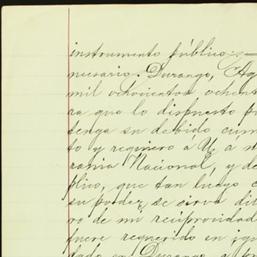 instrumento público
nusario. Durango, Ag
mil ochocientos ochent
ra que lo dispuesto p
tenga su debido cum
to y requiero á U. a n
rania Nacional, y de
plico, que tan luego c
su poder, se sirva dil
vo de mi reciprocidad
fuere requerido en igu
dado en Durango, a